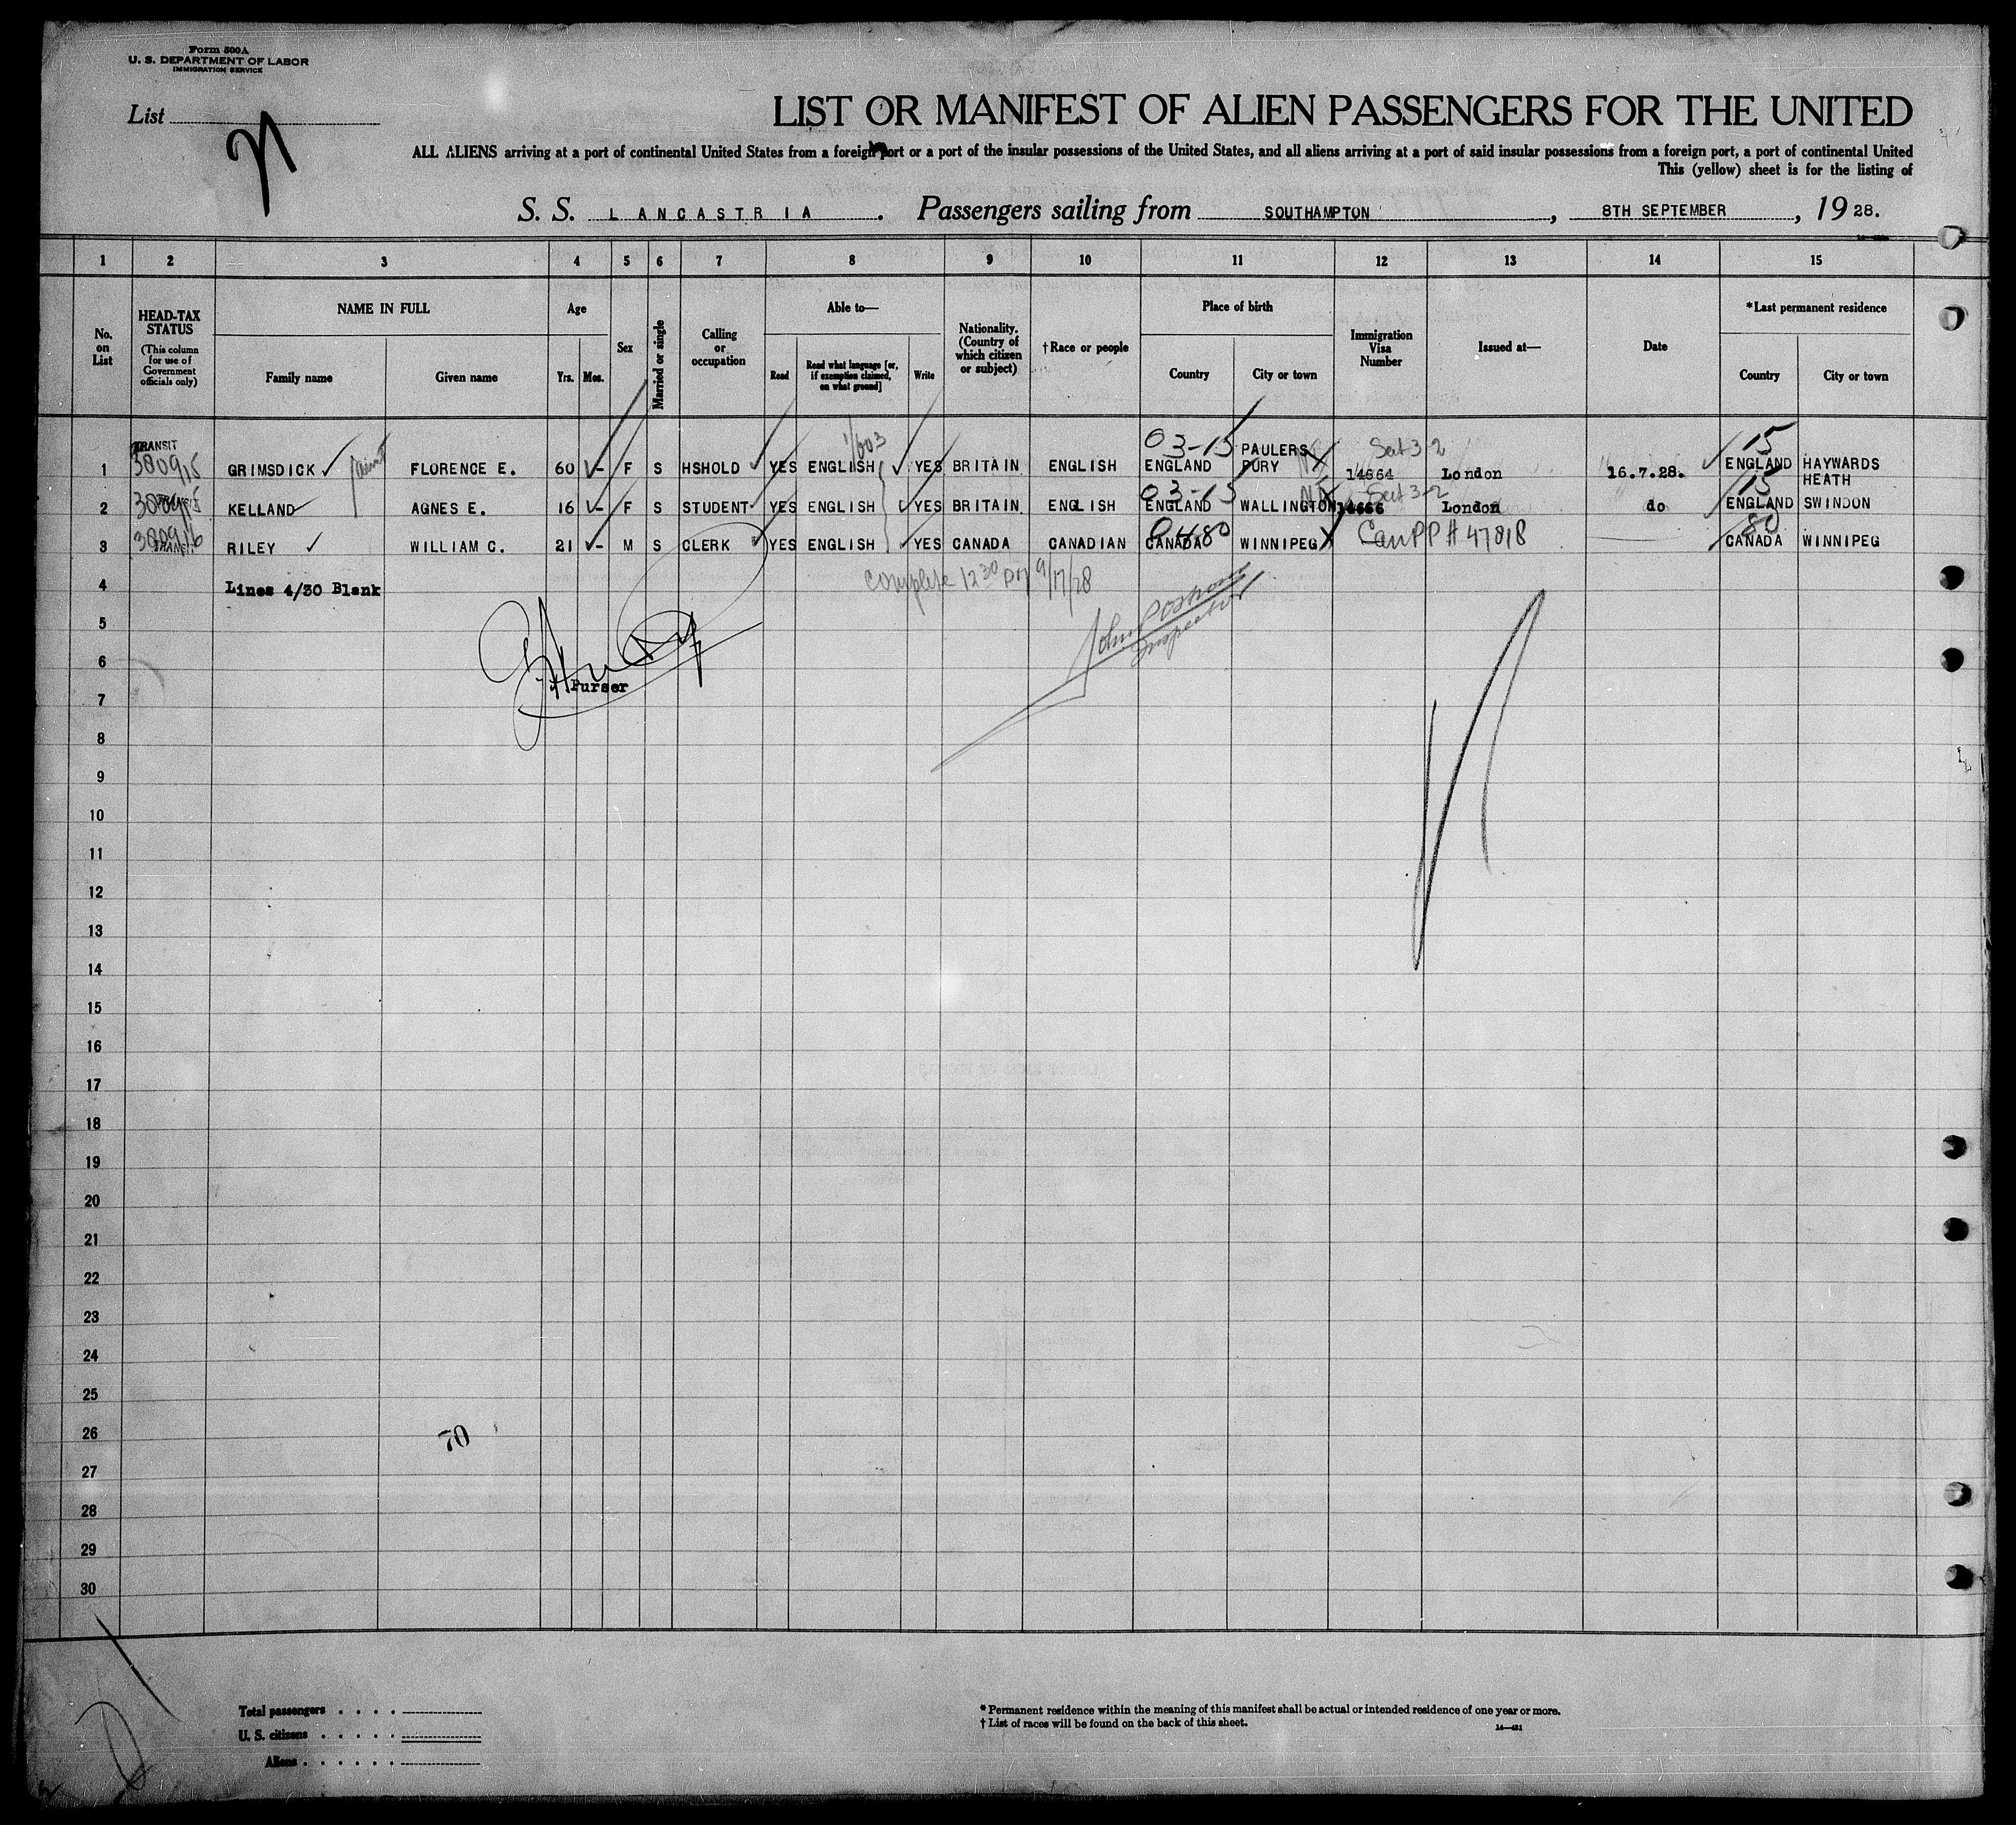 Form 500A
U. S. DEPARTMENT OF LABOR
IMMIGRATION SERVICE
List
LIST OR MANIFEST OF ALIEN PASSENGERS FOR THE UNITED
ALL ALIENS arriving at a port of continental United States from a foreign port or a port of the insular possessions of the United States, and all aliens arriving at a port of said insular possessions from a foreign port, a port of continental United
This (yellow) sheet is for the listing of
S. S. LANCASTRIA. Passengers sailing from SOUTHAMPTON, 8TH SEPTEMBER, 1928.
1 2 3 4 5 6 7 8 9 10 11 12 13 14 15
No. on List
HEAD-TAX STATUS (This column for use of Government officials only)
NAME IN FULL
Family name Given name
Age
Yrs. Mos.
Sex
Married or single
Calling or occupation
Able to—
Read Read what language [or, if exemption claimed, on what ground] Write
Nationality. (Country of which citizen or subject)
† Race or people
Place of birth
Country City or town
Immigration Visa Number
Issued at—
Date
*Last permanent residence
Country City or town
1/603
TRANSIT 03-15 PAULERS Sect 3-2 15
1 380915 GRIMSDICK FLORENCE E. 60 - F S HSHOLD YES ENGLISH YES BRITAIN ENGLISH ENGLAND PURY 14664 London 16.7.28. ENGLAND HAYWARDS HEATH
TRANSIT 03-15 Sect 3-2 15
2 KELLAND AGNES E. 16 - F S STUDENT YES ENGLISH YES BRITAIN ENGLISH ENGLAND WALLINGTON 14666 London do ENGLAND SWINDON
TRANSIT 0480 80
3 380916 RILEY WILLIAM C. 21 - M S CLERK YES ENGLISH YES CANADA CANADIAN CANADA WINNIPEG Can PP # 47818 CANADA WINNIPEG
4 Lines 4/30 Blank Complete 12 30 PM 9/17/28
5
Inspector
6
Purser
7
8
9
10
11
12
13
14
15
16
17
18
19
20
21
22
23
24
25
26
70
27
28
29
30
Total passengers
U. S. citizens
Aliens
* Permanent residence within the meaning of this manifest shall be actual or intended residence of one year or more.
† List of races will be found on the back of this sheet.